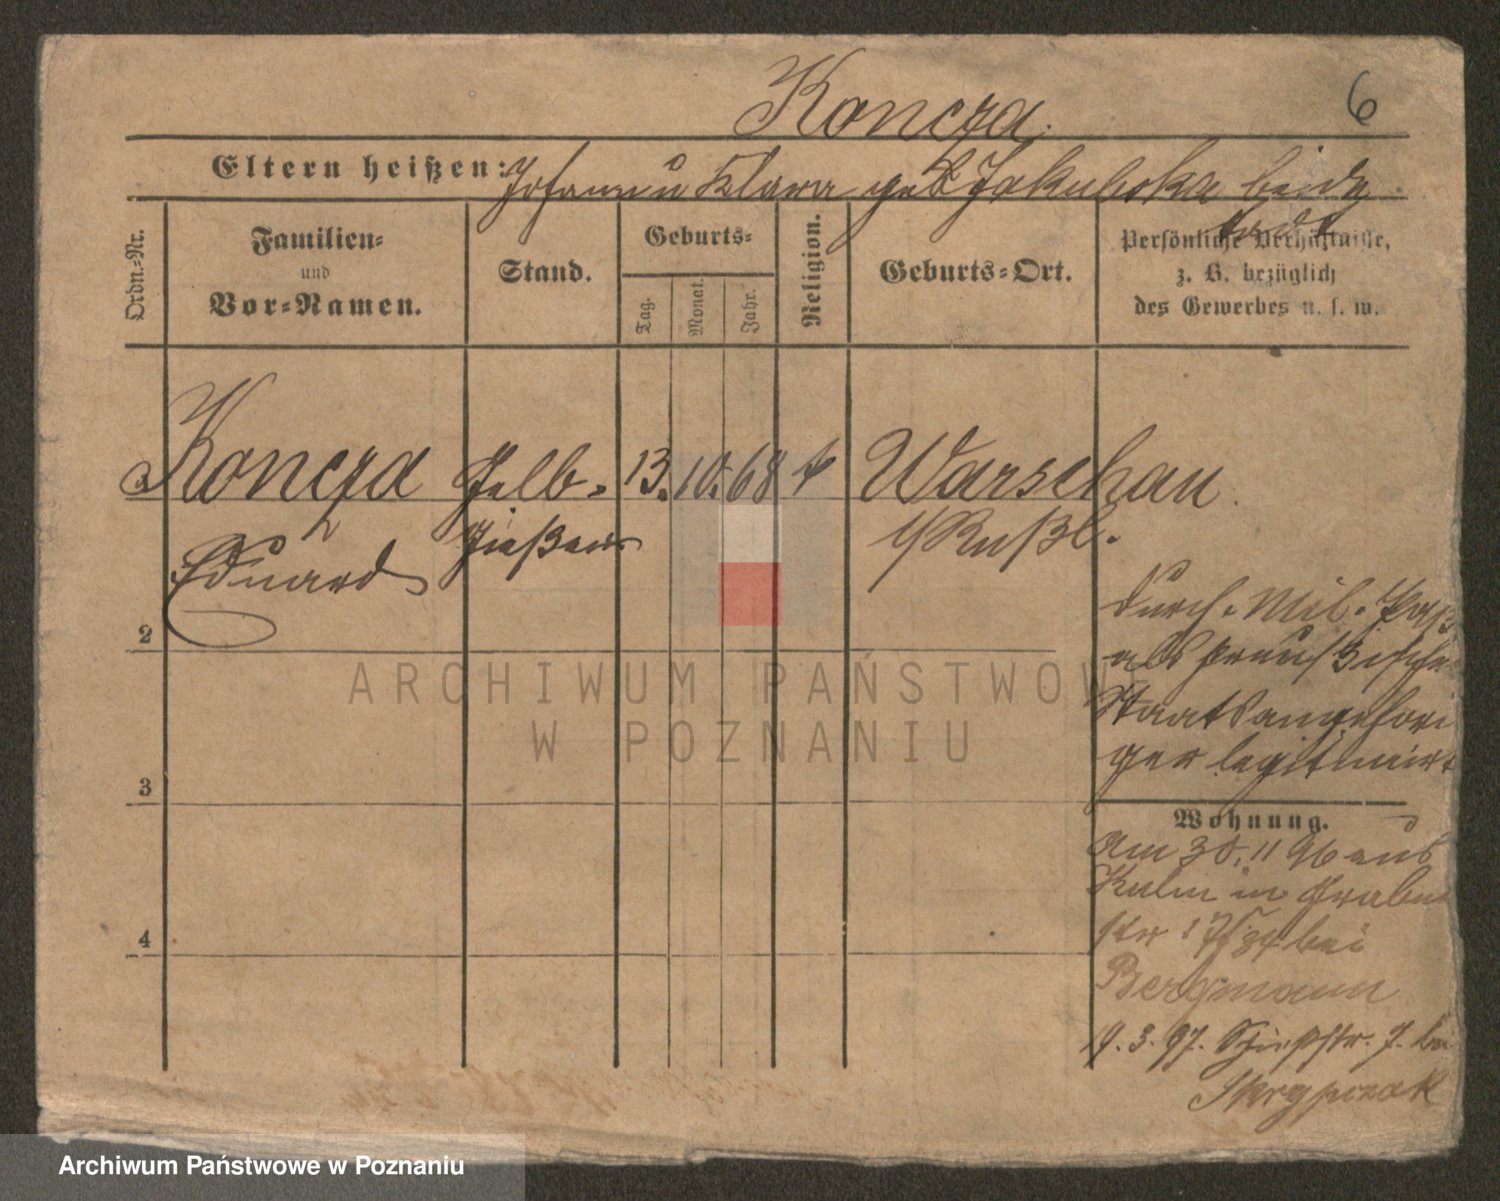 6
Koncza
Eltern heißen: Johann u Klara geb Jakubska beide
todt
Ordn.-Nr.
Familien-
und
Vor-Namen.
Stand.
Geburts-
Tag.
Monat.
Jahr.
Religion.
Geburts-Ort.
Persönliche Verhältnisse,
z. B. bezüglich
des Gewerbes u. s. w.
Koncza Gelb- 13. 10. 68 k Warschau
Eduard gießer Rußl.
durch Mil. Paß
als preußischer
Staatsangehöri
ger legitimirt
2
3
4
Wohnung.
Am 30. 11 96 aus
Kulm in Graben
str bei
Bergmann
19. 3. 97. Schießstr. 7. bei
Skrypczak
ARCHIWUM PAŃSTWOWE
W POZNANIU
Archiwum Państwowe w Poznaniu